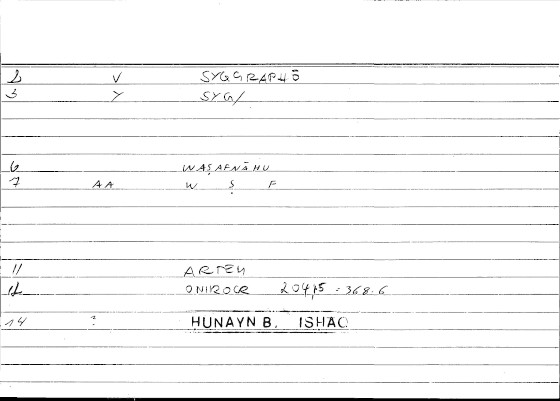 2 V SYGGRAPHŌ
3 Y SYG/
6 WAṢAFNĀHU
7 AA W Ṣ F
11 ARTEM
12 ONIROCR 204,15 = 368.6
14 ? HUNAYN B. ISHAQ